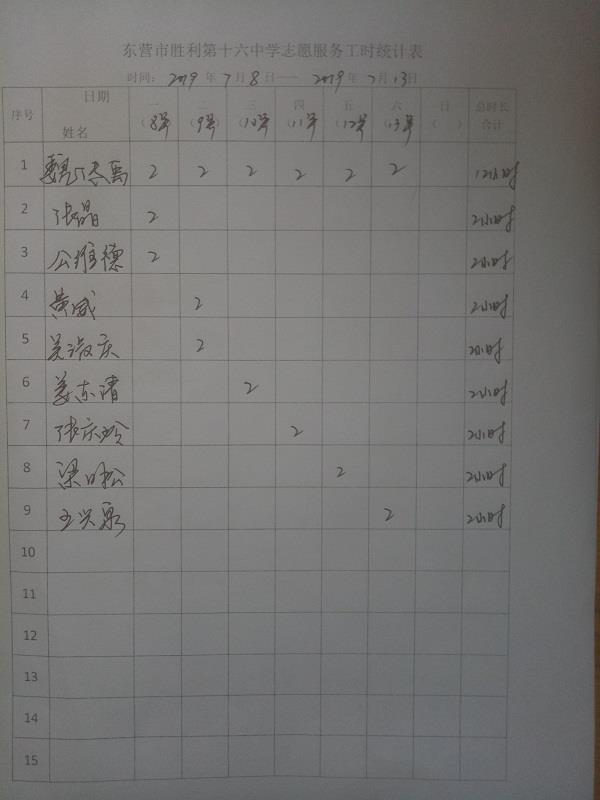 东营市胜利第十六中学志愿服务工时统计表
时间: 2019 年 7 月 8 日—— 2019 年 7 月 13 日
序号 日期 姓名 一 (8号) 二 (9号) 三 (10号) 四 (11号) 五 (12号) 六 (13号) 日 ( ) 总时长合计
1 2 2 2 2 2 2 12小时
2 张晶 2 2小时
3 公维德 2 2小时
4 黄威 2 2小时
5 吴淑庆 2 2小时
6 姜东清 2 2小时
7 张庆玲 2 2小时
8 梁 松 2 2小时
9 王兴泉 2 2小时
10
11
12
13
14
15